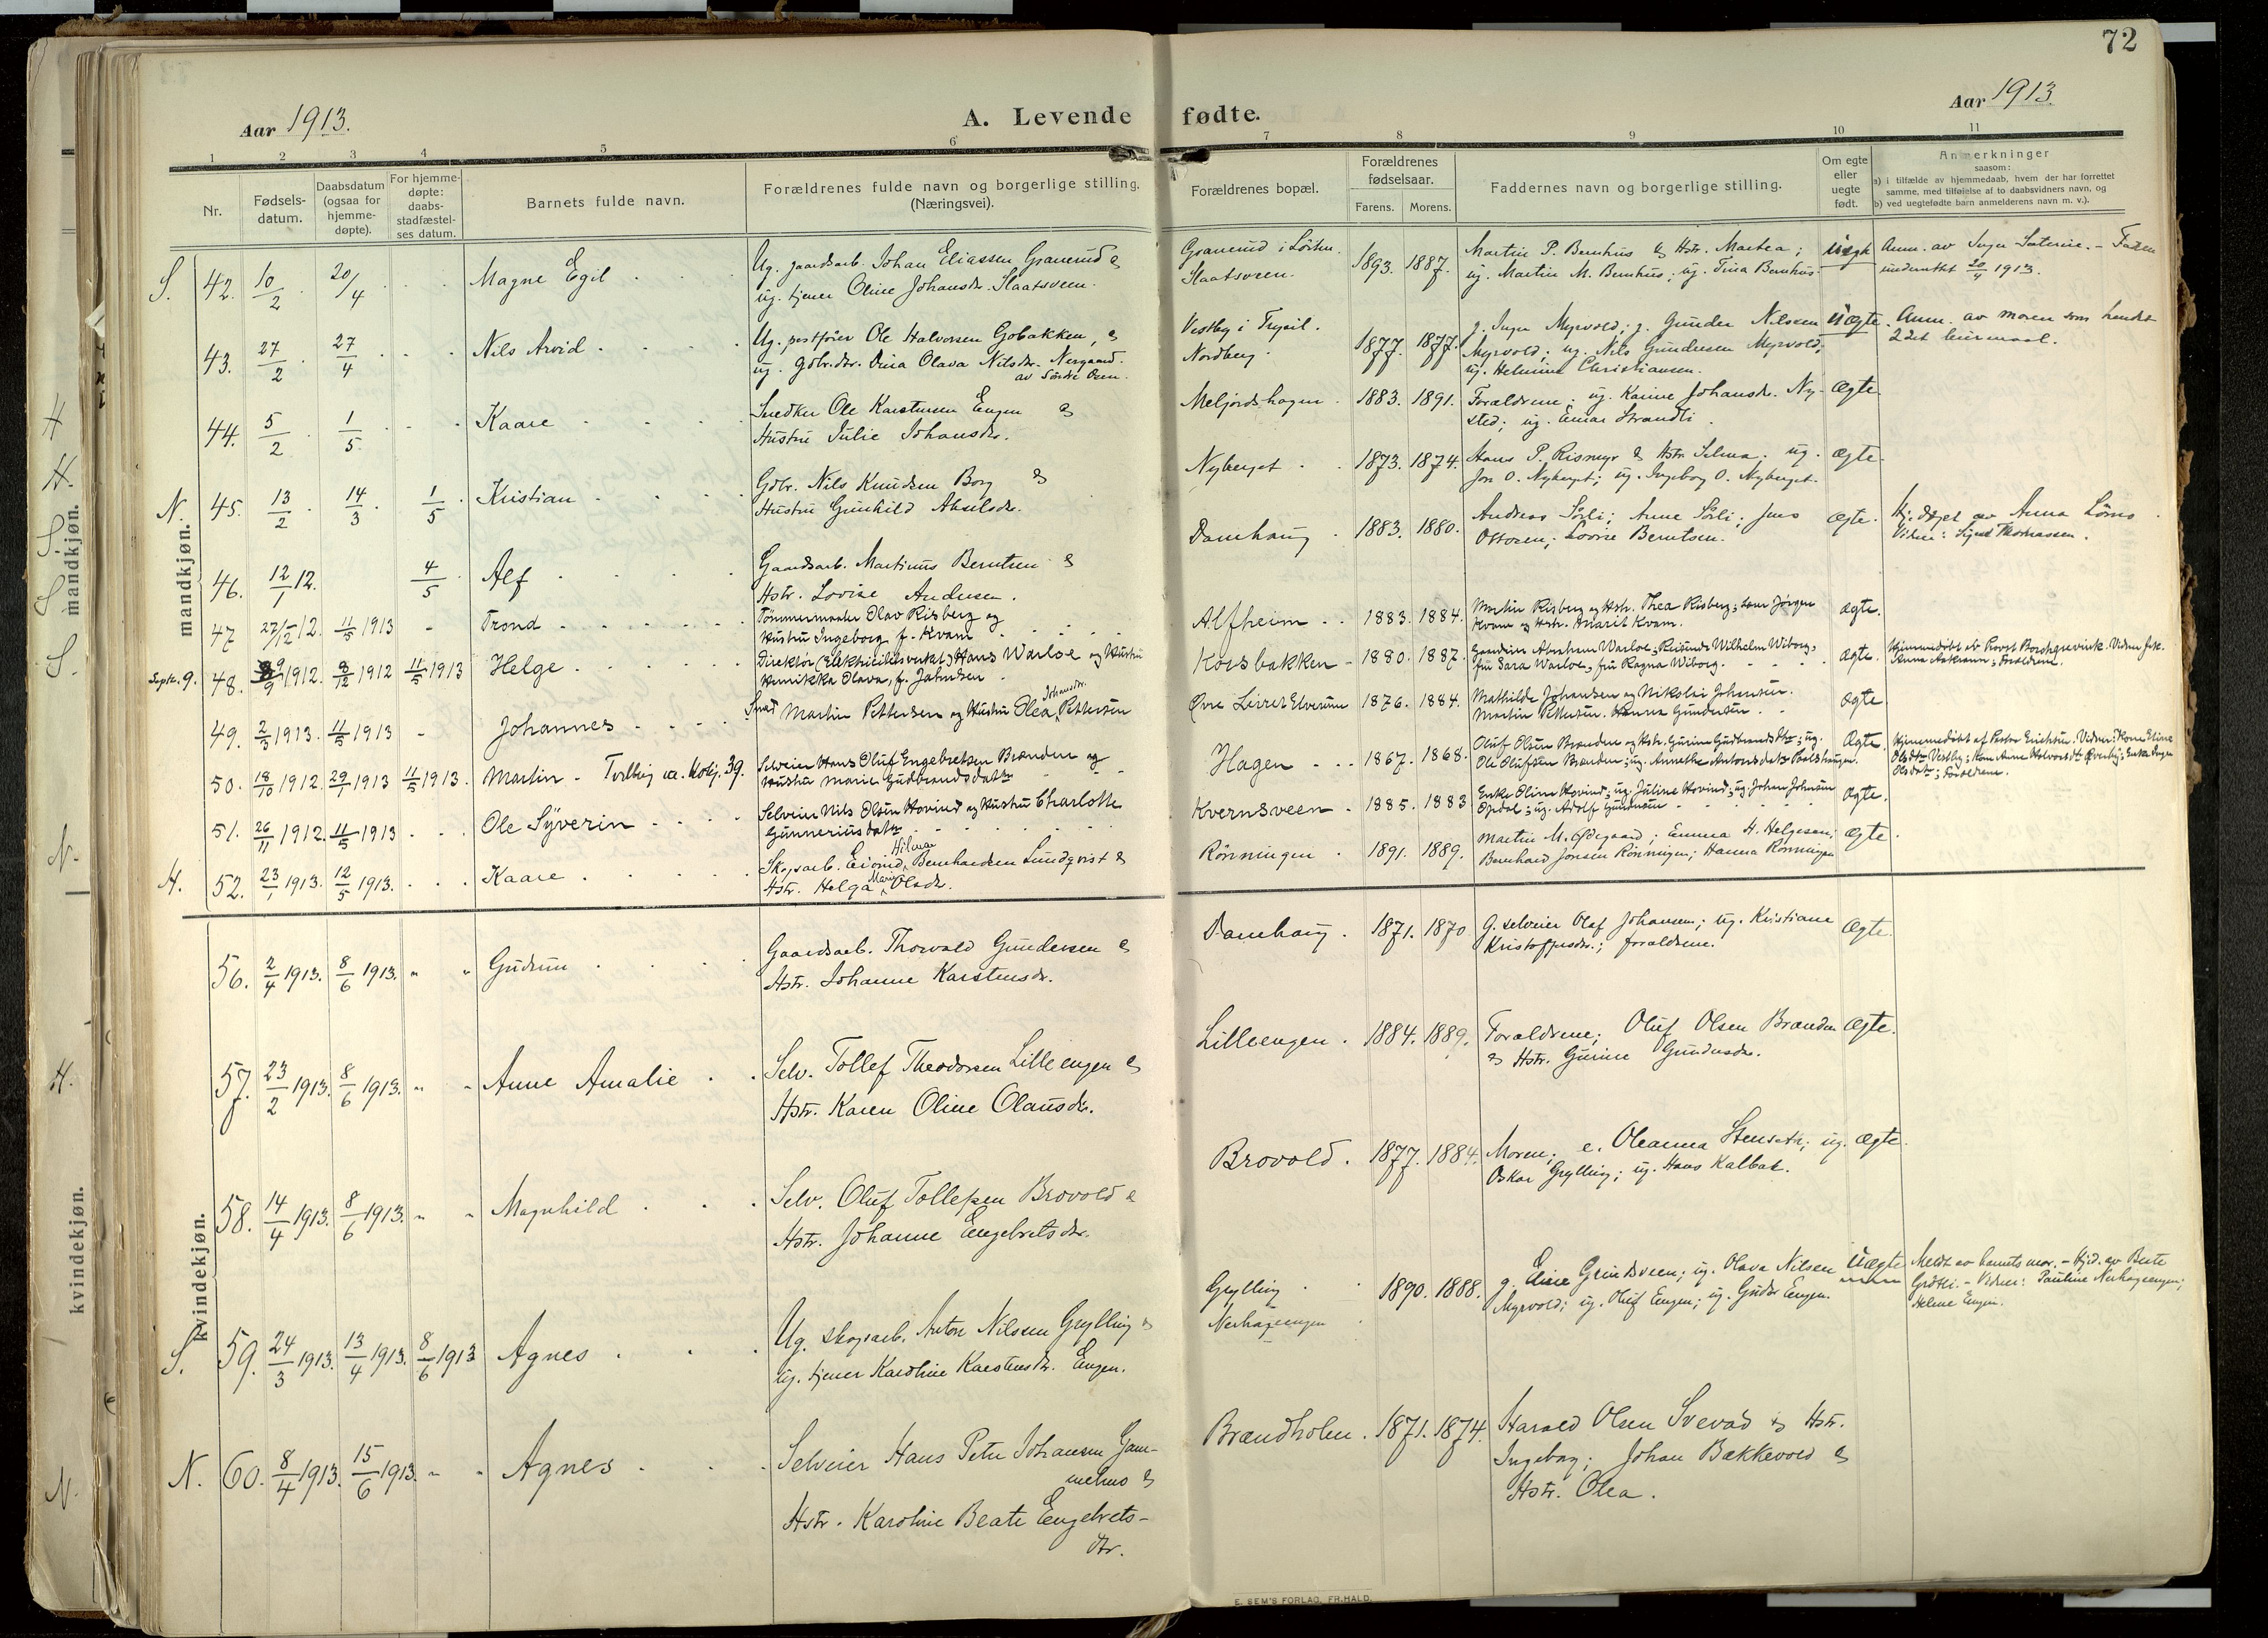 72
Aar 1913.
A. Levende fødte.
Aar 1913.
1 2 3 4 5 6 7 8 9 10 11
Nr.
Fødsels-
datum.
Daabsdatum
(ogsaa for
hjemme-
døpte).
For hjemme-
døpte:
daabs-
stadfæstel-
ses datum.
Barnets fulde navn.
Forældrenes fulde navn og borgerlige stilling.
(Næringsvei).
Forældrenes bopæl.
Forældrenes
fødselsaar.
Farens. Morens.
Faddernes navn og borgerlige stilling.
Om egte
eller
uegte
født.
Anmerkninger
saasom:
a) i tilfælde av hjemmedaab, hvem der har forrettet
samme, med tilføielse af to daabsvidners navn, og
b) ved uegtefødte barn anmelderens navn m. v.).
mandkjøn.
S. 42. 10/2 20/4 Magne Egil
Ug. gaardsarb. Johan Eliassen Granerud &
ug. tjener Oline Johansdr. Slaatsveen.
Granerud i Løiten.
Slaatsveen.
1893. 1887.
Martin P. Bernhus & Hstr. Martea;
ug. Martin M. Bernhus; ug. Tina Bernhus.
Uegte
Anm. av Inga Saterie. - Faderen
underrettet 20/4 1913.
43. 27/2 27/4 Nils Arvid
Ug. postfører Ole Halvorsen Gobakken, &
ug. gdbr.dtr. Dina Olava Nilsdr. Nergaard.
av Søndre Osen.
Vestby i Trysil.
Nordberg.
1877. 1877.
g. Inga Myrvold; g. Gunder Nilsen
Myrvold; ug. Nils Gundersen Myrvold;
ug. Helmine Christiansen.
Uegte.
Anm. av moren som hendes
2det leiermaal.
44. 5/2 1/5 Kaare
Snedker Ole Karstensen Engen &
Hustru Julie Johansdr.
Meljordshagen
1883. 1891.
Forældrene; ug. Karine Johansdr. Ny-
sted; ug. Einar Strandli.
Ægte.
N. 45. 13/2 14/3 1/5 Kristian
Gdbr. Nils Knudsen Borg &
Hustru Gunhild Akselsdr.
Nyberget
1873. 1874.
Hans P. Rismyr & Hstr. Selma; ug.
Jon O. Nyberget; ug. Ingeborg O. Nyberget.
Ægte.
46. 12/1 12. 4/5 Alf
Gaardsarb. Martinus Berntsen &
Hstr. Lovise Andersen.
Damhaug
1883. 1880.
Andreas Sørli; Anne Sørli; Jens
Ottosen; Lovise Berntsen.
Ægte.
Hj. døpt av Anna Lørns
Vidne: Sigurd Thomassen.
47 27/12 12. 11/5 1913 - Trond
Tømmermaaler Olav Risberg og
Hustru Ingeborg f. Kvam
Alfheim
1883. 1884.
Martin Risberg og Hstr. Thea Risberg; Lars Jørgen
Kvam og Hstr. Marit Kvam.
Ægte.
Septr. 9. 48. 9/9 1912. 8/12 1912 11/5 1913 Helge
Direktør (Elektricitetsverket) Hans Warloe og Hustru
Henrikka Olava, f. Jahnsen
Korsbakken
1880. 1887.
Grosserer Abraham Warloe, Reisende Wilhelm Wiborg,
fru Sara Warloe, fru Ragna Wiborg.
Ægte.
Hjemmedøbt af Provst Borchgrevink. Vidner frk.
Anna Aakrann; Forældrene.
49. 2/3 1913. 11/5 1913 - Johannes
Smed Martin Pettersen og Hustru Olea Johansdtr. Pettersen
Øvre Livret Elverum
1876. 1884.
Mathilde Johansen og Nikolai Johansen.
Martin Pettersen. Hanna Gundersen
Ægte
50. 18/10 1912. 29/1 1913 11/5 1913. Martin
Selveier Hans Oluf Engebretsen Branden og
Hustru Marie Gudbrandsdatter
Hagen
1867. 1868.
Oluf Olsen Branden og Hstr. Gurine Gudbrandsdtr; ug.
Ole Olufsen Branden; ug. Annette Antonsdatter Paalshaugen.
Ægte.
Hjemmedøbt af Pastor Erichsen. Vidner: Kone Eline
Olsdtr Vestby; Kone Anne Halvorsdtr Øverby; Enke Inger
Olsdatter; Forældrene.
51. 26/11 1912. 11/5 1913 Ole Syverin
Selveier Nils Olsen Hovind og Hustru Charlotte
Gunneriusdatter
Kvernsveen
1885. 1883
Enke Oline Hovind; ug. Juline Hovind; ug. Johan Johansen
Opdal; ug. Adolf Gundersen
Ægte.
H. 52. 23/1 1913. 12/5 1913. Kaare
Skogsarb. Eivind Hilmar Bernhardsen Lundqvist &
Hstr. Helga Marie Olsdr.
Rønningen
1891. 1889.
Martin M. Ødegaard; Emma H. Helgesen;
Bernhard Jonsen Rønningen; Hanna Rønningen
Ægte
kvindekjøn.
56. 2/4 1913. 8/6 1913. " " Gudrun
Gaardsarb. Thorvald Gundersen &
Hstr. Johanne Karstensdr.
Damhaug.
1871. 1870
G. selveier Olaf Johansen; ug. Kristiane
Kristoffersdr.; forældrene.
Ægte.
57. 23/2 1913. 8/6 1913. " " Anne Amalie
Selv. Tollef Theodorsen Lilleengen &
Hstr. Karen Oline Olausdr.
Lilleengen.
1884. 1889.
Forældrene; Oluf Olsen Branden
& Hstr. Gurine Gundersdr.
Ægte.
58. 14/4 1913. 8/6 1913. " " Magnhild
Selv. Oluf Tollefsen Brovold &
Hstr. Johanne Engebretsdr.
Brovold.
1877. 1884.
Moren; e. Oleanna Stenseth; ug.
Oskar Grylling; ug. Hans Kalbak.
Ægte.
S. 59. 24/3 1913. 13/4 1913. 8/6 1913 Agnes
Ug. skogsarb. Anton Nilsen Grylling &
ug. tjener Karoline Karstensdr. Engen.
Grylling
Nerhagengen
1890. 1888.
g. Eline Grindsveen; ug. Olava Nilsen
Myrvold; ug. Oluf Engen; ug. Gudbr Engen.
Uegte
Meldt av barnets mor. - Hjd. av Berte
Grøtli. - Vidner: Pauline Nerhagengen;
Helene Engen.
N. 60. 8/4 1913. 15/6 1913. " " Agnes
Selveier Hans Peter Johansen Gam-
melmo &
Hstr. Karoline Beate Engebrets-
dtr.
Brandholen.
1871. 1874.
Harald Olsen Svevad & Hstr.
Ingeborg; Johan Bakkevold &
Hstr. Olea.
E. SEM'S FORLAG, FR.HALD.
H
H.
S.
mandkjøn.
S
S.
N.
H.
kvindekjøn.
N.